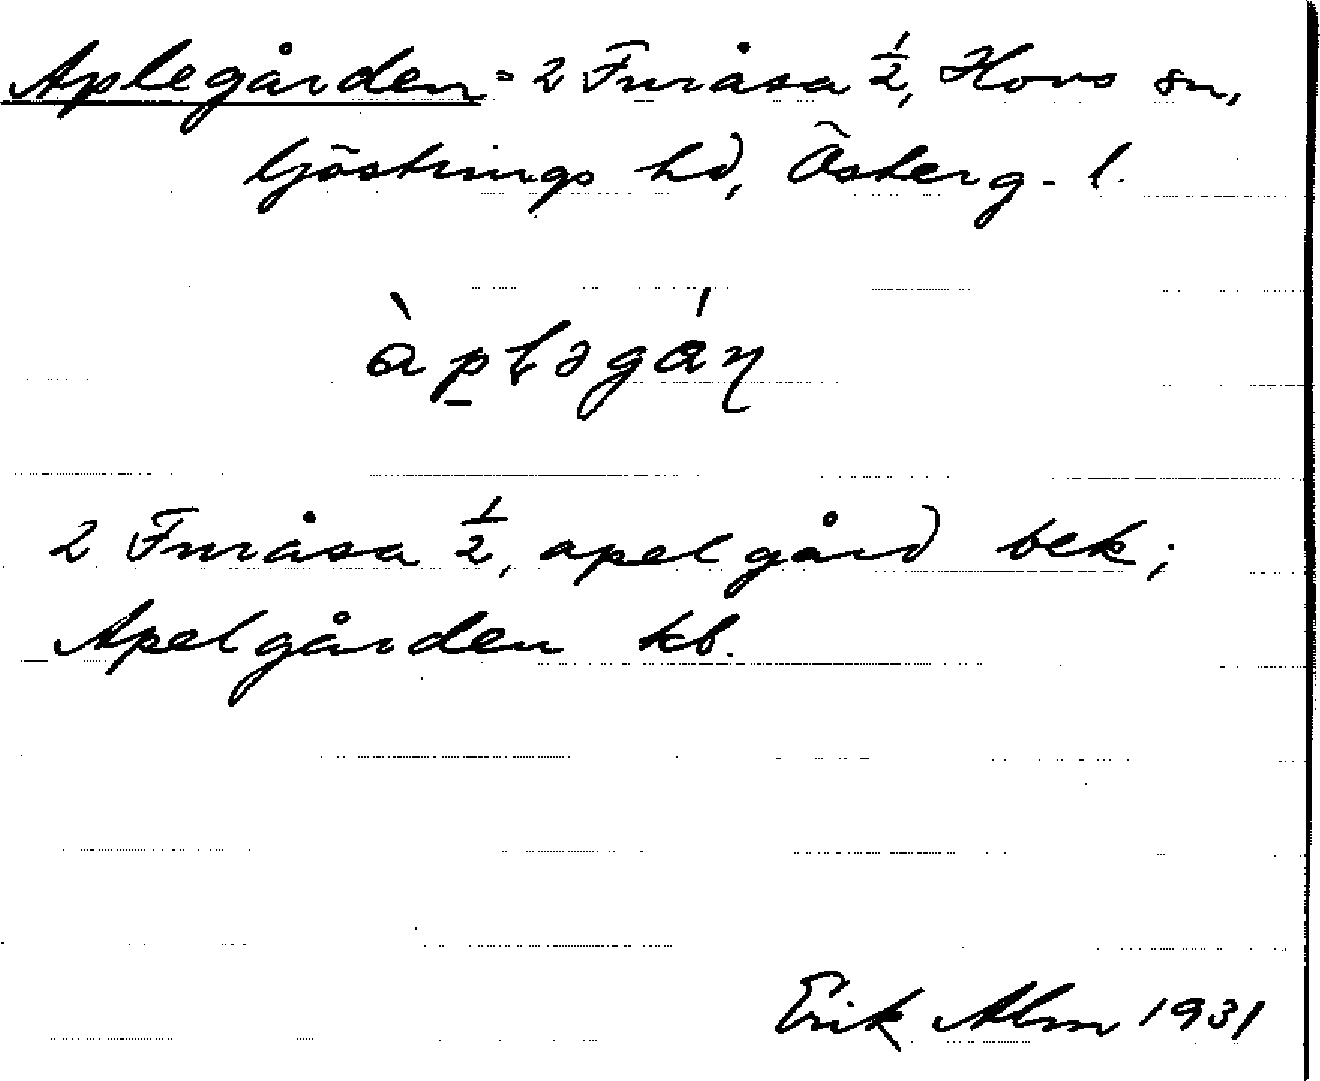 Aplegården = 2 Furåsa 1/2, Hovs sn,
Göstrings hd, Österg. l.
àpləgán
2 Furåsa 1/2, apelgård bek;
Apelgården kb.
Erik Alm 1931